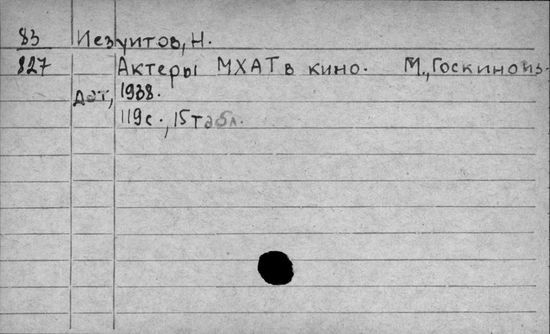 83 Иезуитов, Н.
827 Актеры МХАТ в кино. М., Госкиноиз-
дат, 1938.
119 с., 15 табл.